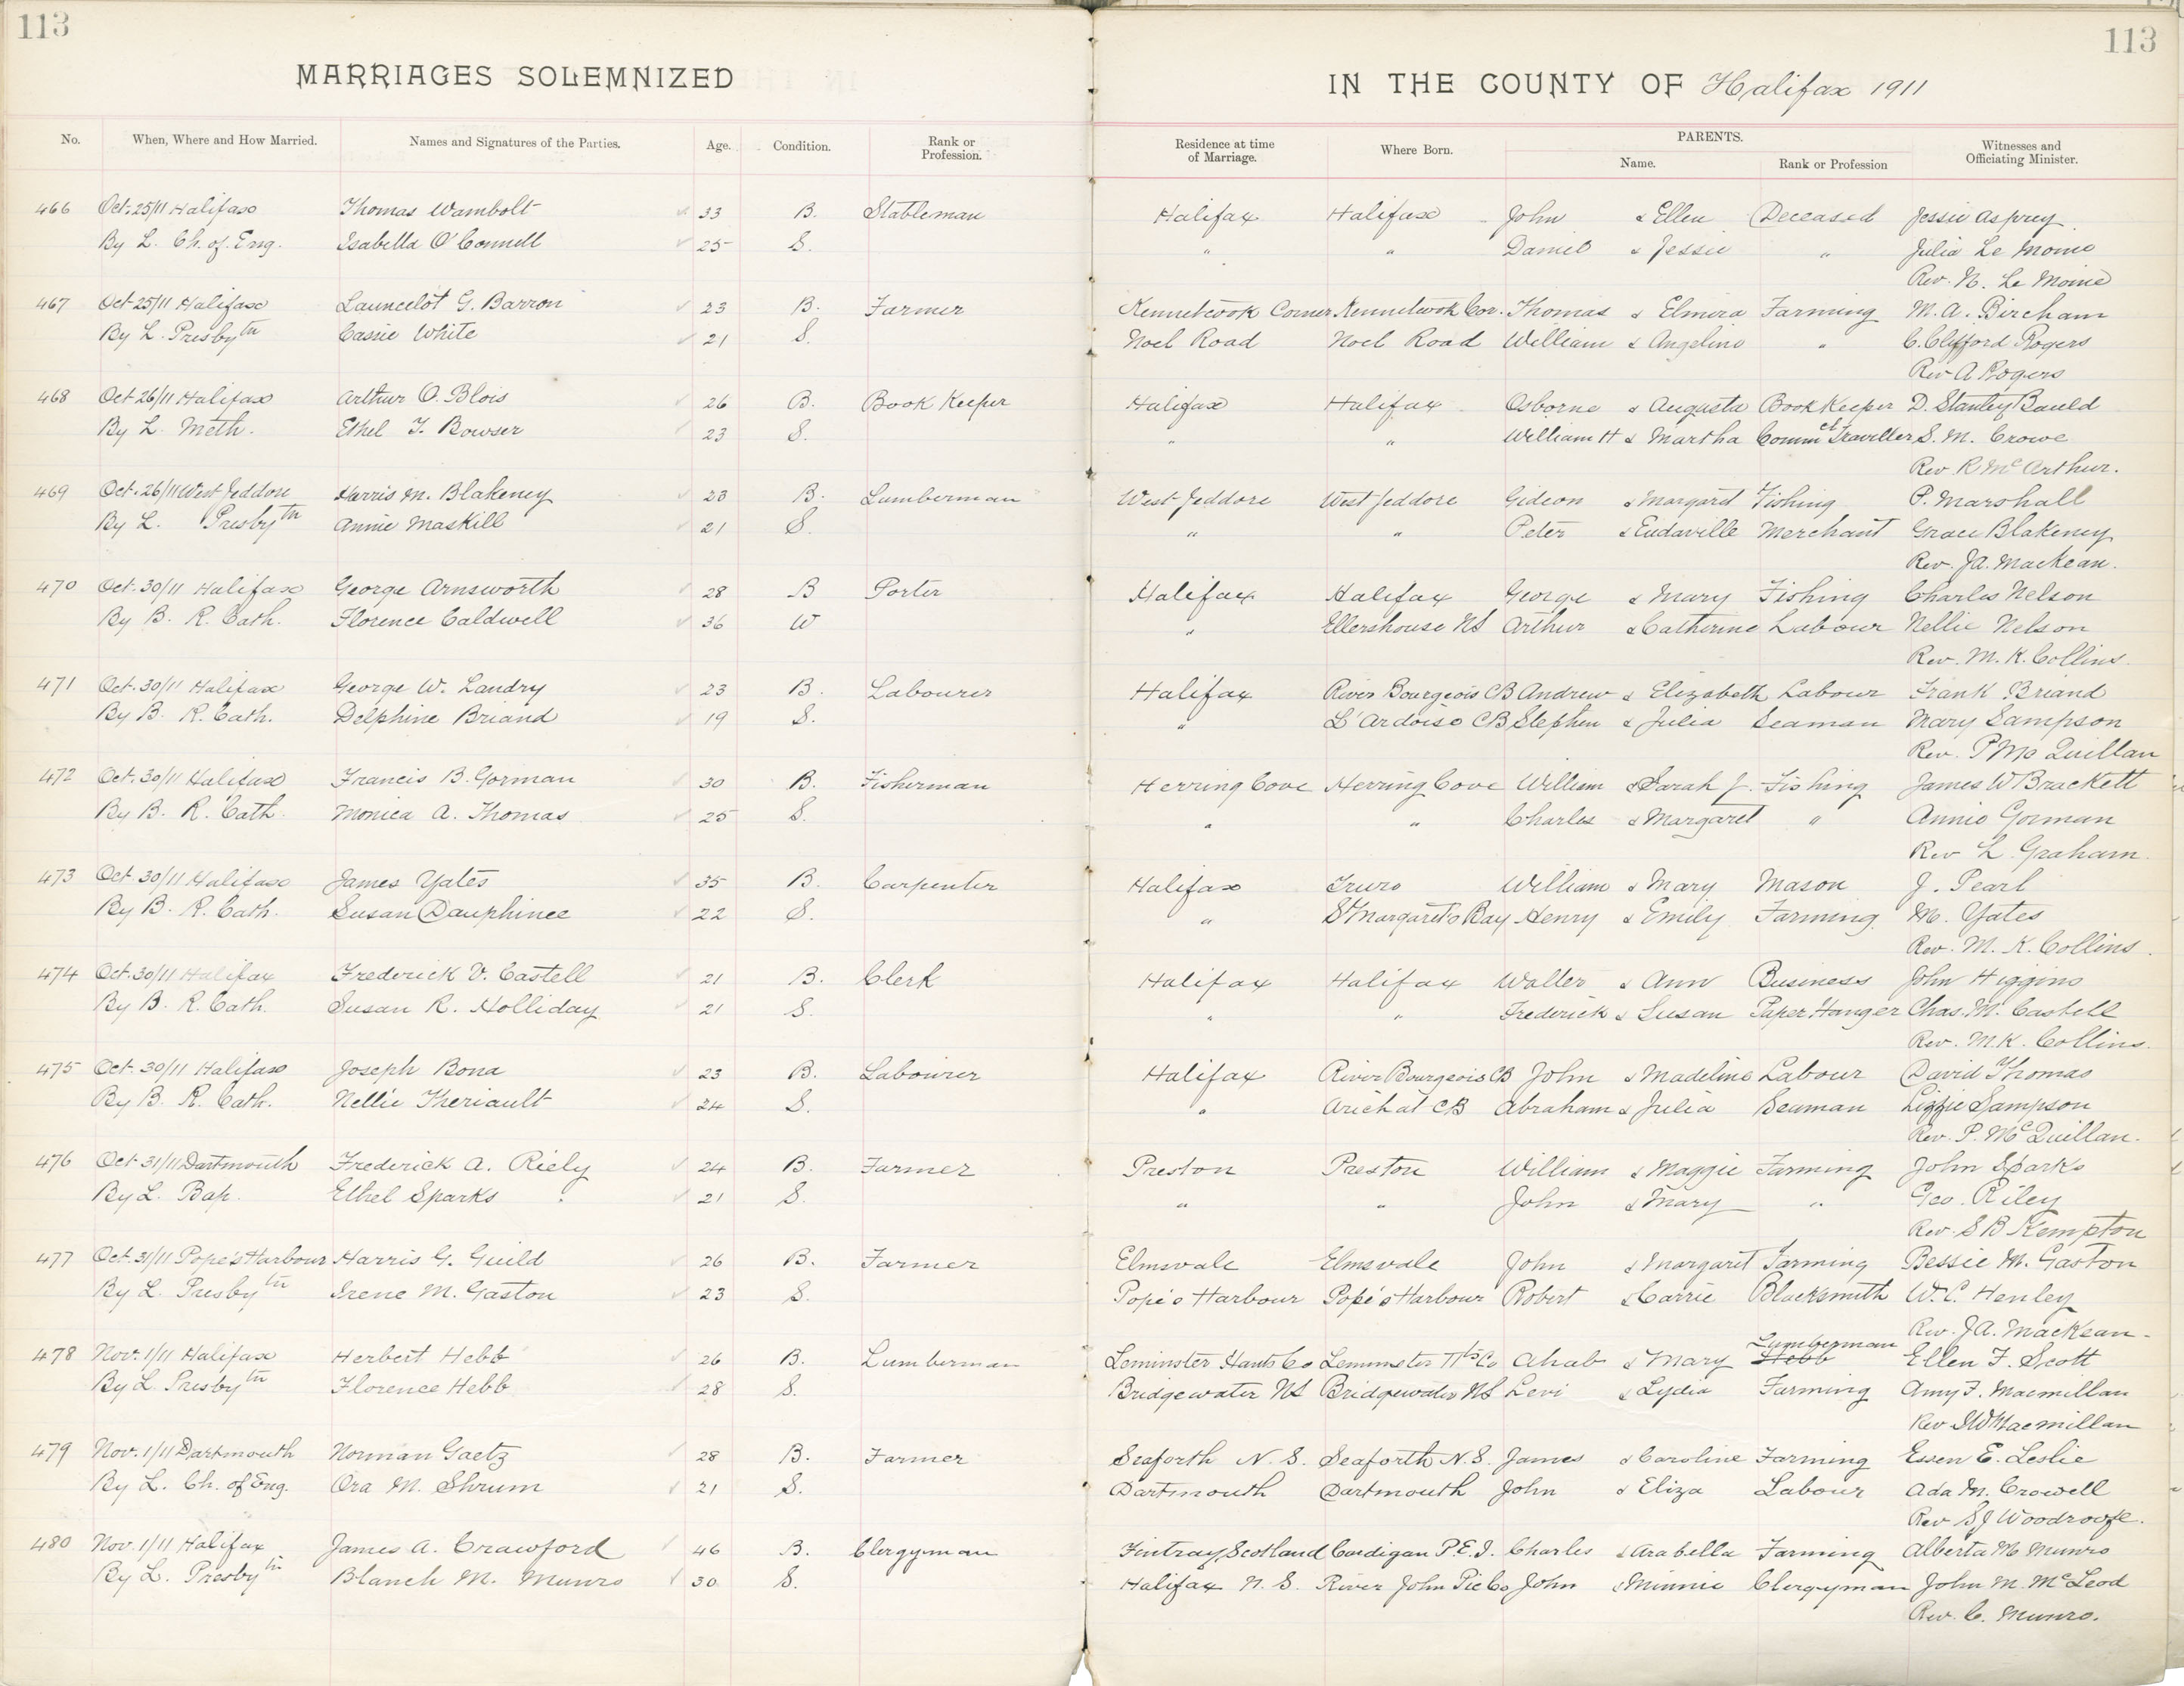 113
113
MARRIAGES SOLEMNIZED
IN THE COUNTY OF Halifax 1911
No. When, Where and How Married. Names and Signatures of the Parties. Age. Condition. Rank or Profession. Residence at time of Marriage. Where Born. PARENTS. Name. Rank or Profession Witnesses and Officiating Minister.
466 Oct. 25/11 Halifax Thomas Wambolt 33 B. Stableman Halifax Halifax John & Ellen Deceased Jessie Asprey
By L. Ch. of Eng. Isabella O'Connell 25 S. " " Daniel & Jessie " Julia Le Moine
Rev. N. Le Moine
467 Oct 25/11 Halifax Launcelot G. Barron 23 B. Farmer Kennetcook Corner Kennetcook Cor. Thomas & Elmira Farming M. A. Bircham
By L. Presbytn Cassie White 21 S. Noel Road Noel Road William & Angelina " C. Clifford Rogers
Rev A Rogers
468 Oct 26/11 Halifax Arthur O. Blois 26 B. Book Keeper Halifax Halifax Osborne & Augusta Book Keeper D. Stanley Bauld
By L. Meth. Ethel T. Bowser 23 S. " " William H & Martha Commcl Traveller S. M. Crowe
Rev. R McArthur.
469 Oct. 26/11 West Jeddore Harris M. Blakeney 23 B. Lumberman West Jeddore West Jeddore Gideon & Margaret Fishing P. Marshall
By L. Presbytn Annie Maskill 21 S. " " Peter & Eudaville Merchant Grace Blakeney
Rev. J.A. MacKean.
470 Oct. 30/11 Halifax George Arnsworth 28 B Porter Halifax Halifax George & Mary Fishing Charles Nelson
By B. R. Cath. Florence Caldwell 36 W " Ellershouse NS Arthur & Catherine Labour Nellie Nelson
Rev. M. K. Collins.
471 Oct. 30/11 Halifax George W. Landry 23 B. Labourer Halifax River Bourgeois CB Andrew & Elizabeth Labour Frank Briand
By B. R. Cath. Delphine Briand 19 S. " L'Ardoise CB Stephen & Julia Seaman Mary Sampson
Rev. P Mc Quillan
472 Oct. 30/11 Halifax Francis B. Gorman 30 B. Fisherman Herring Cove Herring Cove William & Sarah J. Fishing James W Brackett
By B. R. Cath. Monica A. Thomas 25 S. " " Charles & Margaret " Annie Gorman
Rev L. Graham.
473 Oct. 30/11 Halifax James Yates 35 B. Carpenter Halifax Truro William & Mary Mason J. Pearl
By B. R. Cath. Susan Dauphinee 22 S. " St Margarets Bay Henry & Emily Farming M. Yates
Rev. M. K. Collins.
474 Oct. 30/11 Halifax Frederick V. Castell 21 B. Clerk Halifax Halifax Walter & Ann Business John Higgins
By B. R. Cath. Susan R. Holliday 21 S. " " Frederick & Susan Paper Hanger Chas. M. Castell
Rev. M.K. Collins.
475 Oct. 30/11 Halifax Joseph Bona 23 B. Labourer Halifax River Bourgeois CB John & Madeline Labour David Thomas
By B. R. Cath. Nellie Theriault 24 S. " Arichat CB Abraham & Julia Seaman Lizzie Sampson
Rev. P. McQuillan.
476 Oct 31/11 Dartmouth Frederick A. Riely 24 B. Farmer Preston Preston William & Maggie Farming John Sparks
By L. Bap. Ethel Sparks 21 S. " " John & Mary " Geo. Riley
Rev. S B Kempton
477 Oct. 31/11 Pope's Harbour Harris G. Guild 26 B. Farmer Elmsvale Elmsvale John & Margaret Farming Bessie M. Gaston
By L. Presbytn Irene M. Gaston 23 S. Pope's Harbour Pope's Harbour Robert & Carrie Blacksmith W. C. Henley
Rev. J.A. MacKean.
478 Nov. 1/11 Halifax Herbert Hebb 26 B. Lumberman Leminster Hants Co Leminster Hts Co Ahab & Mary Hebb Lumberman Ellen F. Scott
By L. Presbytn Florence Hebb 28 S. Bridgewater NS Bridgewater NS Levi & Lydia Farming Amy F. Macmillan
Rev J W Macmillan
479 Nov. 1/11 Dartmouth Norman Gaetz 28 B. Farmer Seaforth N. S. Seaforth N. S. James & Caroline Farming Essen E. Leslie
By L. Ch. of Eng. Ora M. Shrum 21 S. Dartmouth Dartmouth John & Eliza Labour Ada M. Crowell
Rev S J Woodroofe.
480 Nov. 1/11 Halifax James A. Crawford 46 B. Clergyman Fintray, Scotland Cardigan P.E.I. Charles & Arabella Farming Alberta M Munro
By L. Presbytn Blanch M. Munro 30 S. Halifax N. S. River John Pic Co John & Minnie Clergyman John M. McLeod
Rev. C. Munro.